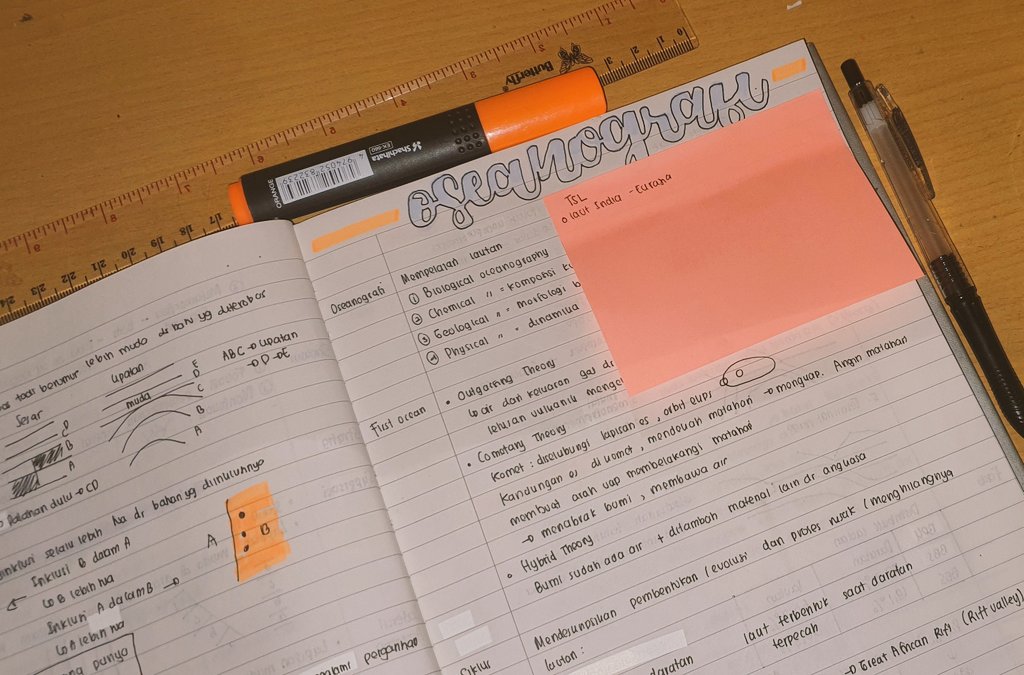 Butterfly
Shachihata
EX-680
ORANGE
4974052832239
oseanografi
TSL
o laut India - Eurasia
Oseanografi
Mempelajari lautan
① Biological oceanography
② Chemical " = komposisi
③ Geological " = morfologi
④ Physical " = dinamika
First ocean
• Outgassing Theory
↳ air dari keluaran gas
letusan vulkanik
• Cometary Theory
Komet : diselubungi lapisan es, orbit elips
Kandungan es di komet, mendekati matahari → menguap. Angin matahari
membuat arah uap membelakangi matahari
→ menabrak bumi, membawa air
• Hybrid Theory
Bumi sudah ada air + ditambah material lain dr angkasa
Siklus
Mendeskripsikan pembentukan / evolusi dan proses rusak / menghilangnya
lautan :
daratan
laut terbentuk saat daratan
terpecah
→ Great African Rift (Rift valley)
tadi berumur lebih muda dr batu yg diterobos
Sesar
lipatan
muda
E
D
C
B
A
ABC → lipatan
→ D → E
D
B
A
Patahan dulu → CD
inklusi selalu lebih tua dr bahan yg diinklusinya
Inklusi B dalam A
↳ B lebih tua
Inklusi A dalam B →
↳ A lebih tua
A
B
punya